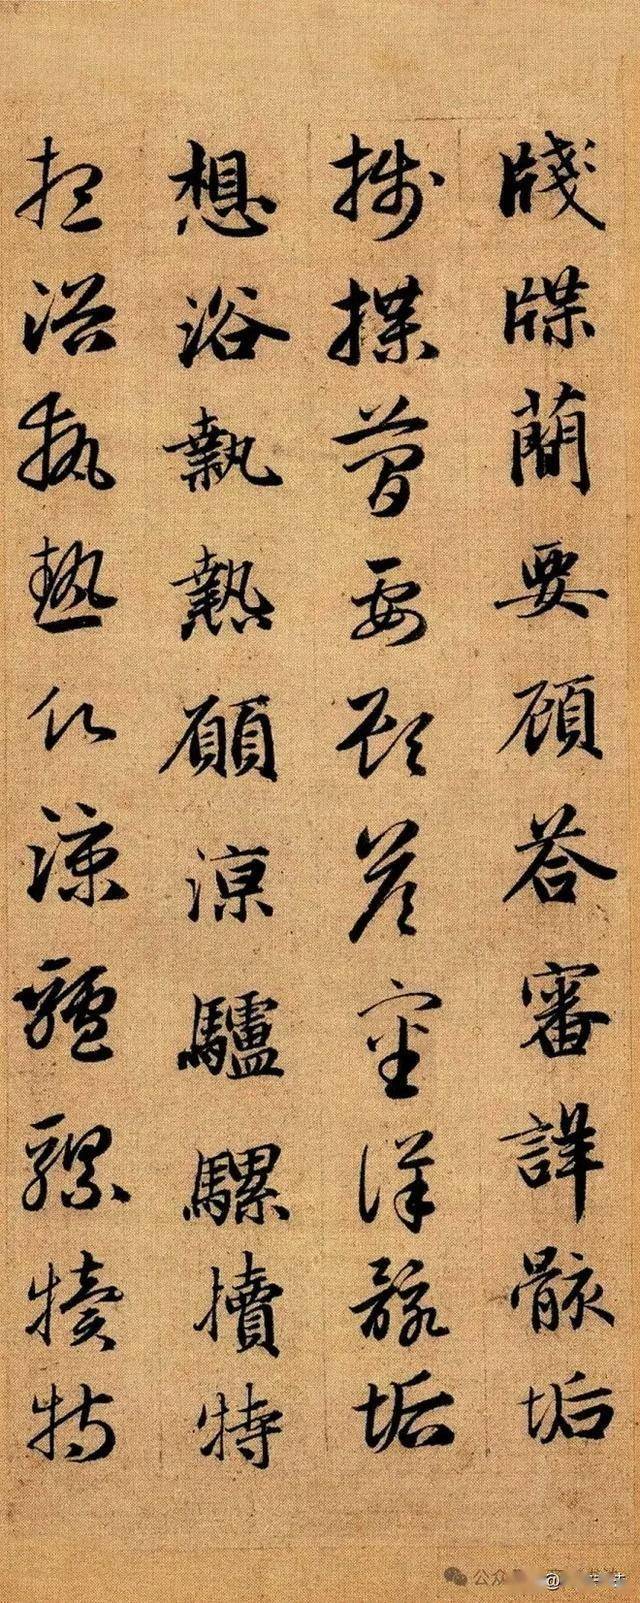 牋牒簡要顧答審詳骸垢
牋牒簡要顧答審詳骸垢
想浴執熱願涼驢騾犢特
想浴執熱願涼驢騾犢特
公众